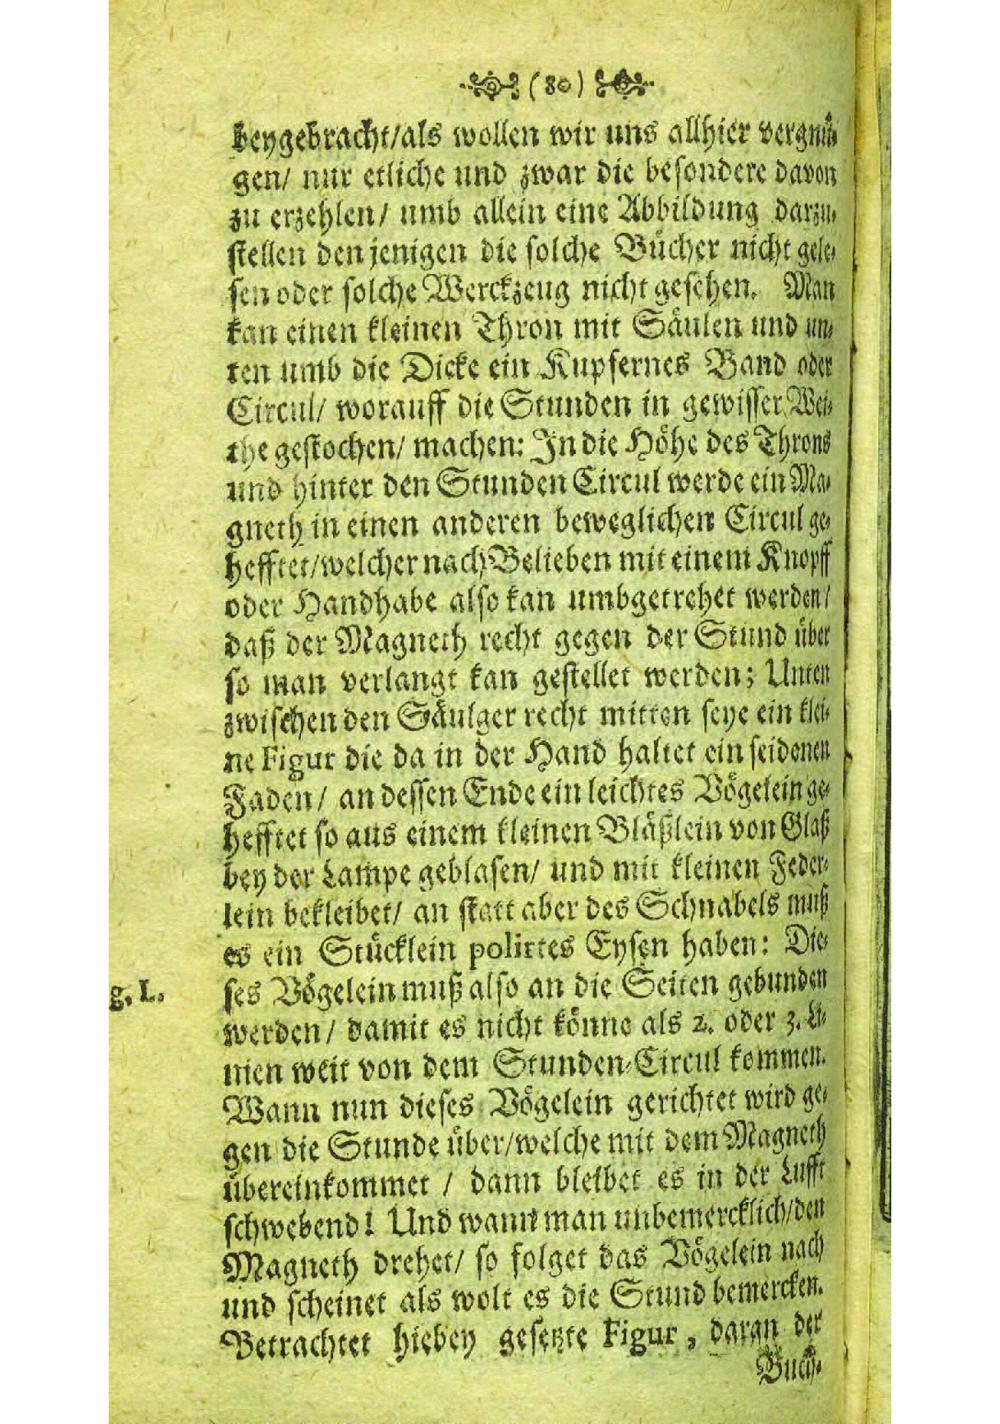 (80)
beygebracht/als wollen wir uns allhier vergnü-
gen/ nur etliche und zwar die besondere davon
zu erzehlen/ umb allein eine Abbildung darzu-
stellen den jenigen die solche Bücher nicht gele-
sen oder solche Werckzeug nicht gesehen. Man
kan einen kleinen Thron mit Säulen und un-
ten umb die Dicke ein Kupfernes Band oder
Circul/ worauff die Stunden in gewisser Wei-
the gestochen/ machen: In die Höhe des Throns
und hinter den Stunden Circul werde ein Ma-
gneth in einen anderen beweglichen Circul ge-
hefftet/welcher nach Belieben mit einem Knopff
oder Handhabe also kan umbgetrehet werden/
daß der Magneth recht gegen der Stund über
so man verlangt kan gestellet werden; Unten
zwischen den Säulger recht mitten seye ein klei-
ne Figur die da in der Hand haltet ein seidenen
Faden/ an dessen Ende ein leichtes Vögelein ge-
hefftet so aus einem kleinen Bläßlein von Glaß
bey der Lampe geblasen/ und mit kleinen Feder-
lein bekleibet/ an statt aber des Schnabels muß
es ein Stücklein polirtes Eysen haben: Die-
g. L. ses Vögelein muß also an die Seiten gebunden
werden/ damit es nicht könne als 2. oder 3. Li-
nien weit von dem Stunden-Circul kommen.
Wann nun dieses Vögelein gerichtet wird ge-
gen die Stunde über/welche mit dem Magneth
übereinkommet / dann bleibet es in der Lufft
schwebend! Und wann man unbemercklich/den
Magneth drehet/ so folget das Vögelein nach
und scheinet als wolt es die Stund bemercken.
Betrachtet hiebey gesetzte Figur, daran der
Buch-